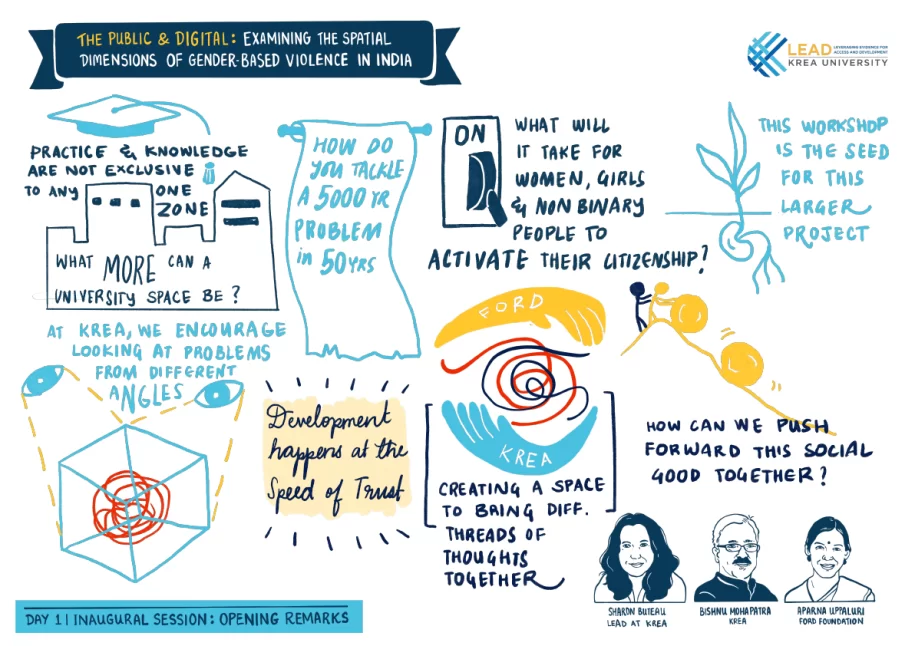 THE PUBLIC & DIGITAL: EXAMINING THE SPATIAL
DIMENSIONS OF GENDER-BASED VIOLENCE IN INDIA
LEAD
LEVERAGING EVIDENCE FOR
ACCESS AND DEVELOPMENT
KREA UNIVERSITY
PRACTICE & KNOWLEDGE
ARE NOT EXCLUSIVE
TO ANY ONE
ZONE
WHAT MORE CAN A
UNIVERSITY SPACE BE ?
HOW DO
YOU TACKLE
A 5000 YR
PROBLEM
in 50YRS
ON
WHAT WILL
IT TAKE FOR
WOMEN, GIRLS
& NON BINARY
PEOPLE TO
ACTIVATE THEIR CITIZENSHIP?
THIS WORKSHOP
IS THE SEED
FOR THIS
LARGER
PROJECT
AT KREA, WE ENCOURAGE
LOOKING AT PROBLEMS
FROM DIFFERENT
ANGLES
Development
happens at the
Speed of Trust
FORD
KREA
CREATING A SPACE
TO BRING DIFF.
THREADS OF
THOUGHTS
TOGETHER
HOW CAN WE PUSH
FORWARD THIS SOCIAL
GOOD TOGETHER?
SHARON BUTEAU
LEAD AT KREA
BISHNU MOHAPATRA
KREA
APARNA UPPALURI
FORD FOUNDATION
DAY 1 | INAUGURAL SESSION: OPENING REMARKS